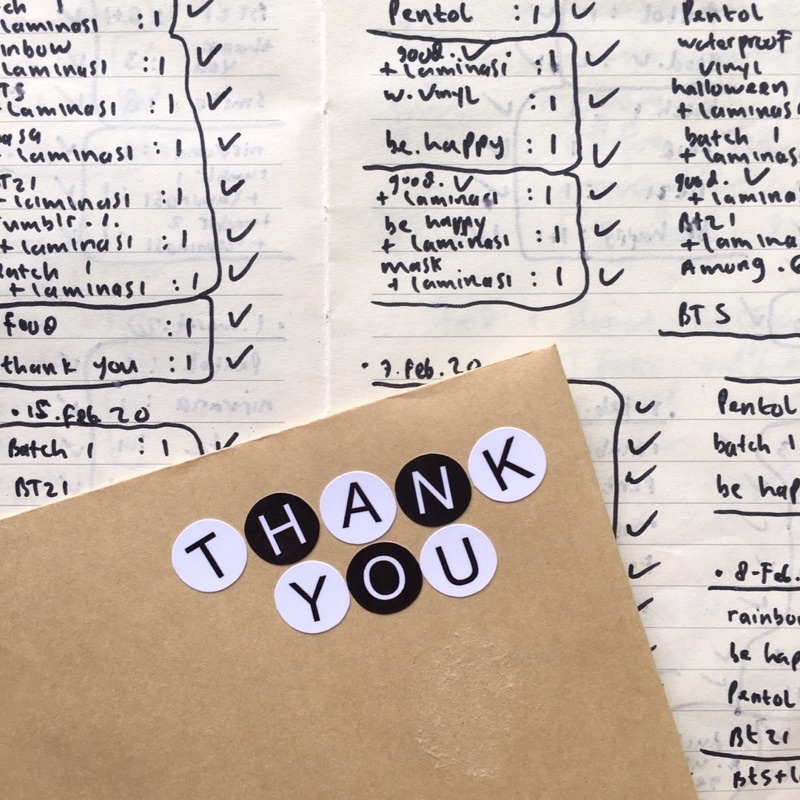 laminasi : 1
inbow
laminasi : 1
TS
laminasi : 1
laminasi : 1
T21
+ laminasi : 1
Tumblr 1.
+ laminasi : 1
Batch 1
+ laminasi : 1
food : 1
thank you : 1
• 15. Feb 20
Batch 1 : 1
BT21
Pentol : 1
good.
+ laminasi : 1
w. vinyl
be.happy : 1
good.
+ laminasi : 1
be happy
+ laminasi : 1
mask
+ laminasi : 1
• 7. Feb. 20
Pentol
waterproof
vinyl
halloween
+ laminas
batch 1
+ laminas
good.
+ lamina
Bt21
+ lamina
Among.
BTS
Pentol
batch 1
be hap
• 8-Feb.
rainbo
be hap
Pentol
Bt 21
Bts+l
THANK
YOU